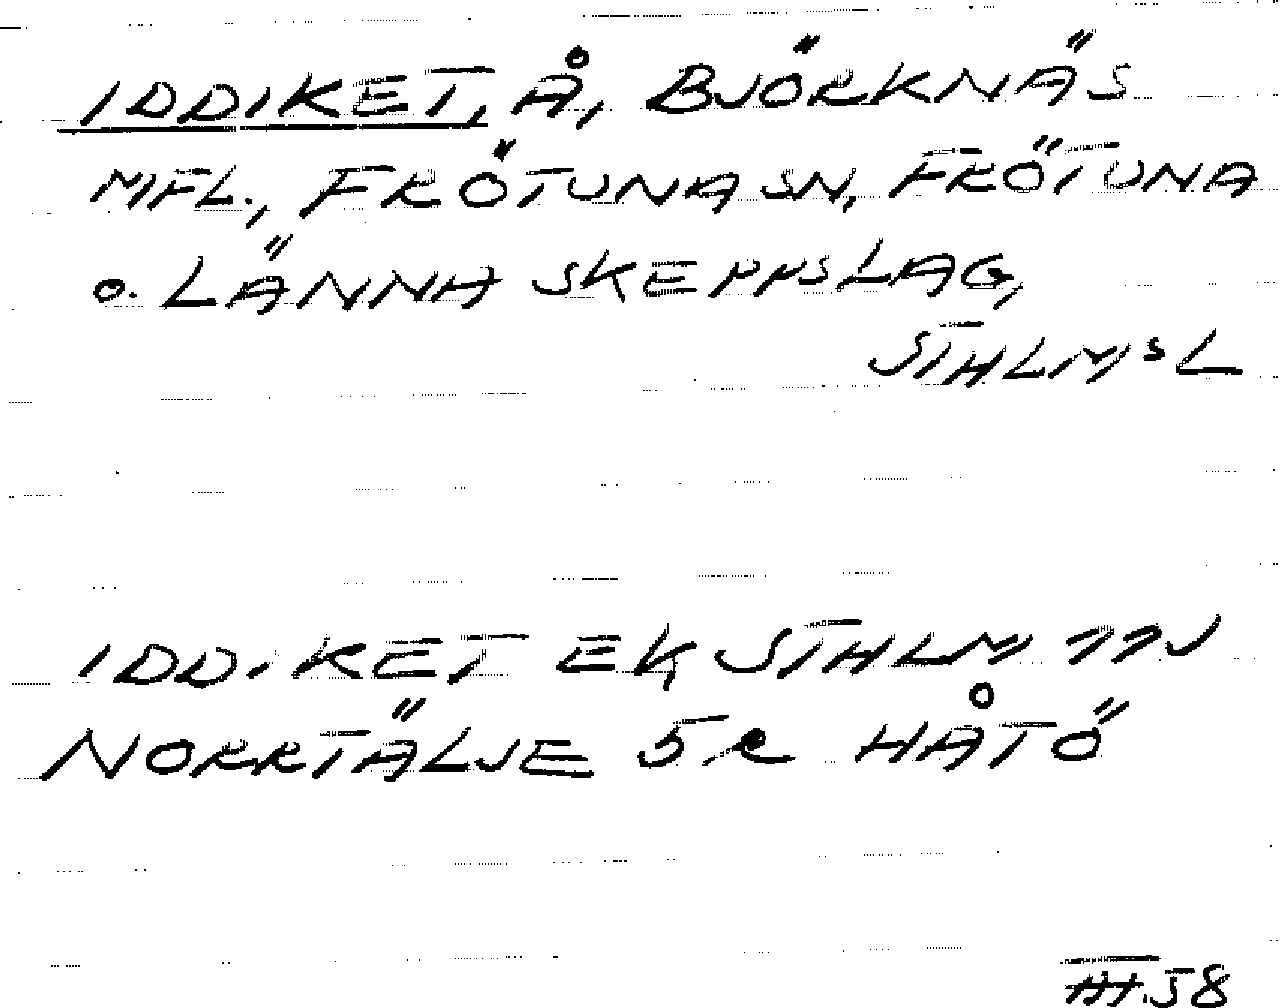 IDDIKET, Å, BJÖRKNÄS
MFL., FRÖTUNA SN, FRÖTUNA
o. LÄNNA SKEPPSLAG,
STHLMS L
IDDIKET EK STHLM 11J
NORRTÄLJE 5 e HÅTÖ